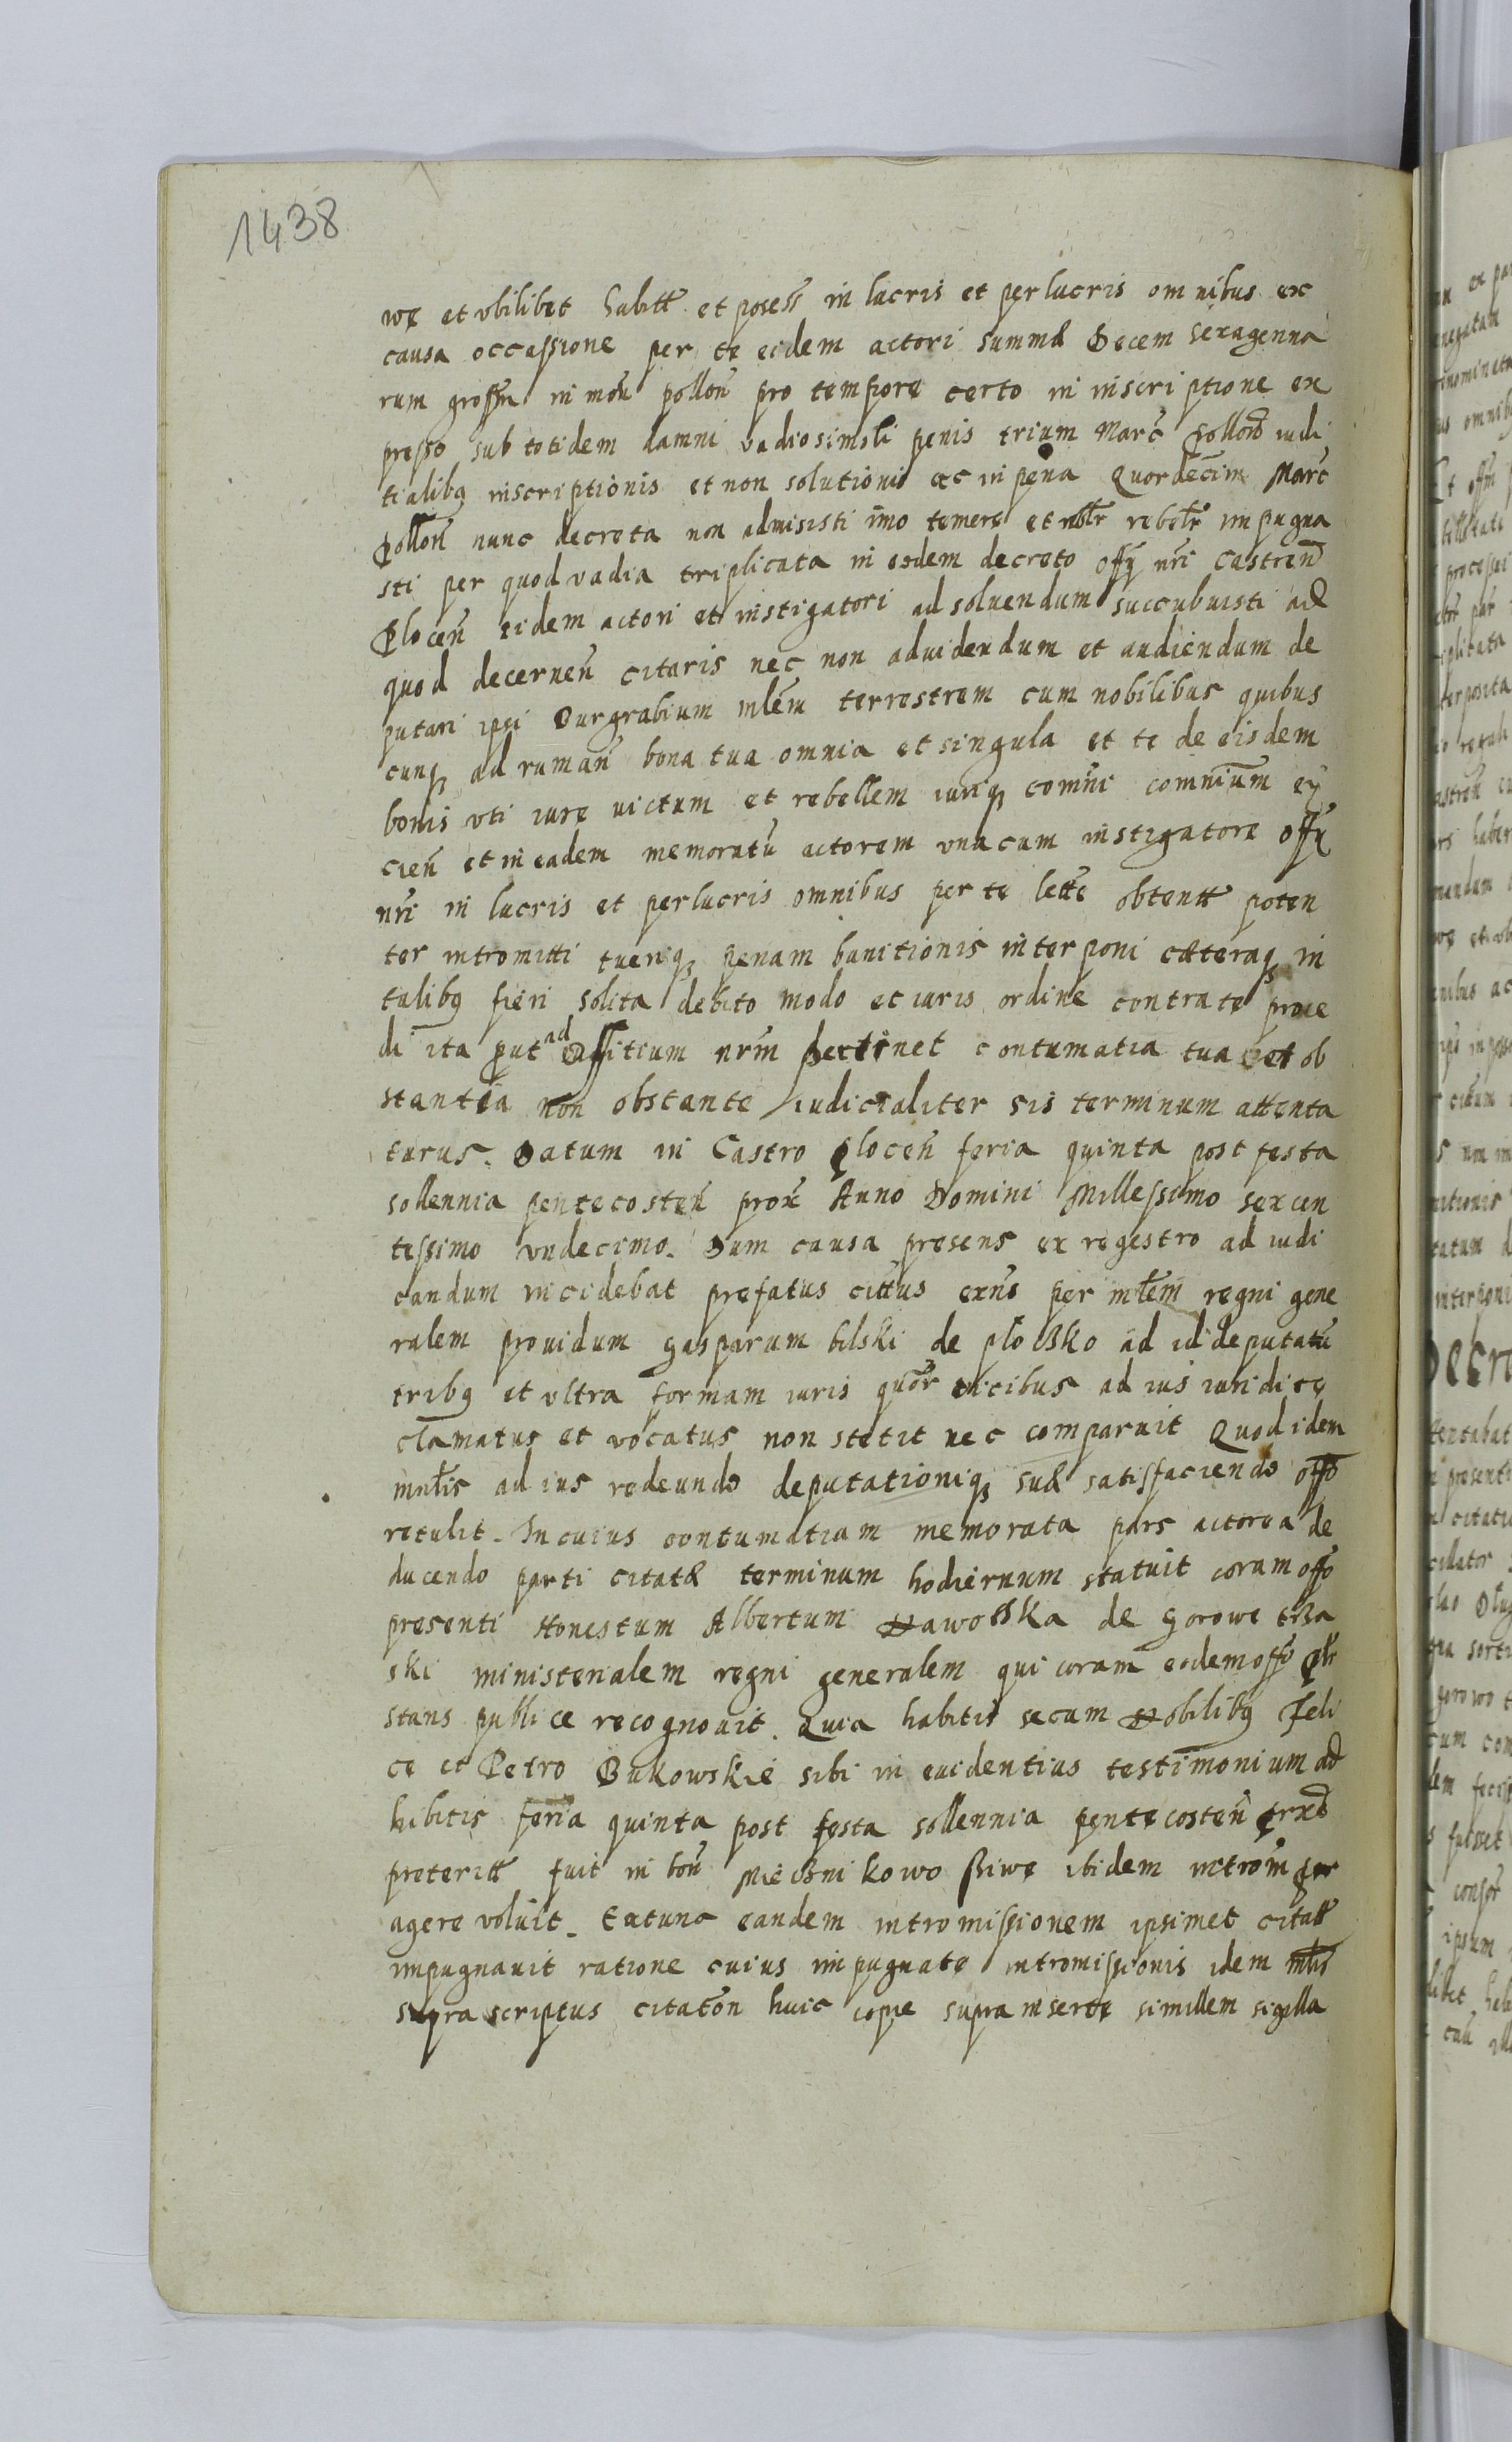 1438
we et vbilibet habitt et possess in lucris et perlucris omnibus ex
causa occassione per te eidem actori summæ Decem sexagenna
rum grossr in mon pollon pro tempore certo in inscriptione ex
presso sub totidem damni vadio simili penis trium Marc pollono iudi
tialibq inscriptionis et non solutionis ac in pena Quordecim Marc
Pollon nunc decreta non admisisti imo temere et rebetr impugna
sti per quod vadia triplicata in eodem decreto offy nri Castren
Plocen eidem actori et instigatori ad soluendum succubuisti ad
quod decernen citaris nec non ad videndum et audiendum de
putari ipsi Burgrabium mlem terrestrem cum nobilibus quibus
cunq ad ruman bona tua omnia et singula et te de eisdem
bonis vti iure uictum et rebellem iuriq comni comnium ey
cien et in eadem memoratu actorem vna cum instigatore offy
nri in lucris et perlucris omnibus per te lette obtentt poten
ter intromitti tueriq penam banitionis interponi cæteraq in
talibq fieri solita debito modo et iuris ordine contra te proce
di ita put ad Officium nrm pertinet contumatia tua et ob
stantia non obstante iudicialiter sis terminum attenta
turus. Datum in Castro Plocen feria quinta post festa
sollennia pentecosten prox Anno Domini Millessimo sexcen
tessimo vndecimo. Dum causa presens ex regestro ad iudi
candum incidebat prefatus cittus exns per mlem regni gene
ralem prouidum gasparum bilski de ploczko ad id deputatu
tribq et vltra formam iuris quor vicibus ad ius iuridice
clamatus et vocatus non stetit nec comparuit Quod idem
mnlis ad ius redeundo deputationiq suæ satisfaciendo offo
retulit. In cuius contumatiam memorata pars actorea de
ducendo parti citatæ terminum hodiernum statuit coram offo
presenti Honestum Albertum Nawoska de gorowe trza
ski ministerialem regni generalem qui coram eodem offo
stans publice recognouit. Quia habitis secum Nobilibq Feli
ce et Petro Bukowskie sibi in euidentius testimonium ad
hibitis feria quinta post festa sollennia pentecosten
preteritt fuit in bon Miecznikowo siwe ibidem introm per
agere voluit. Extunc eandem intromissionem ipsimet citatt
impugnauit ratione cuius impugnate intromissionis idem mlis
supra scriptus citaton huic copie supra inserte simillem sigilla